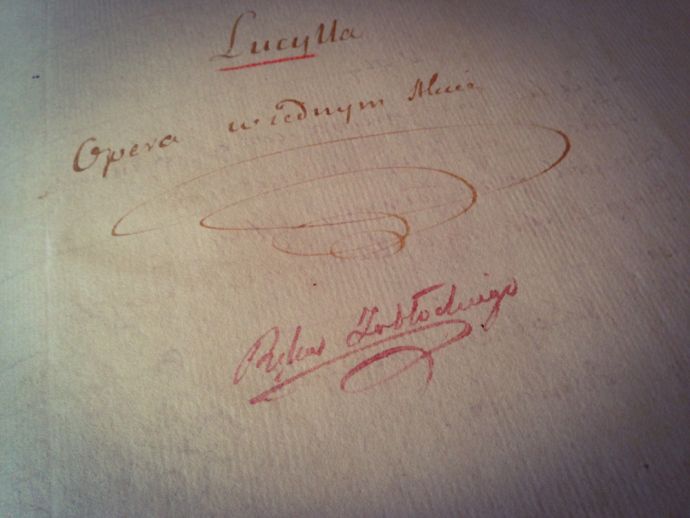 Lucylla
Opera w iednym Akcie
Ręka Zabłockiego